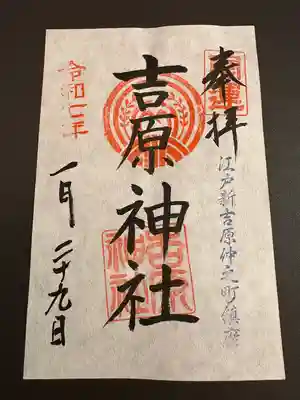 開運
奉拝
江戸新吉原仲之町鎮座
吉原神社
吉原神社
令和七年
一月二十九日